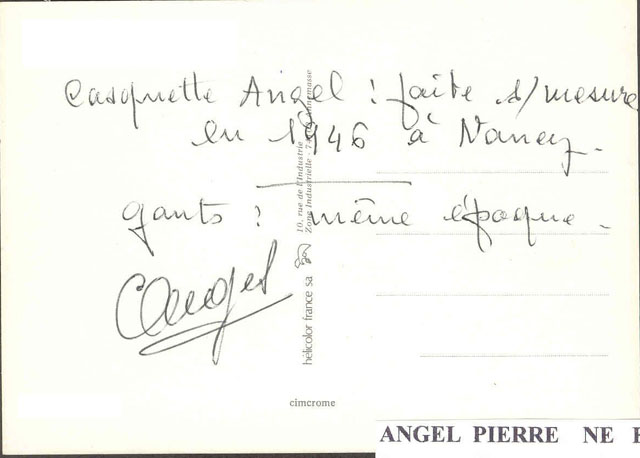 Casquette Angel : faite s/mesure
en 1946 à Nancy.
gants : même époque.
CAngel
10, rue de l'Industrie
Zone Industrielle - 74 Annemasse
hélicolor france sa
cimcrome
ANGEL PIERRE NE